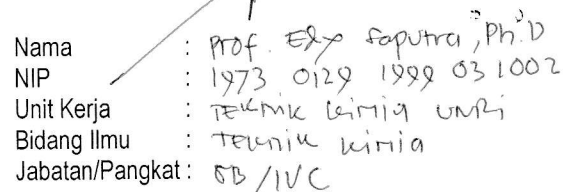 Nama : Prof. Edy Saputra, Ph.D
NIP : 1973 0129 1999 03 1002
Unit Kerja : TEKNIK Kimia UNRi
Bidang Ilmu : TEKNIK Kimia
Jabatan/Pangkat : GB /IVC